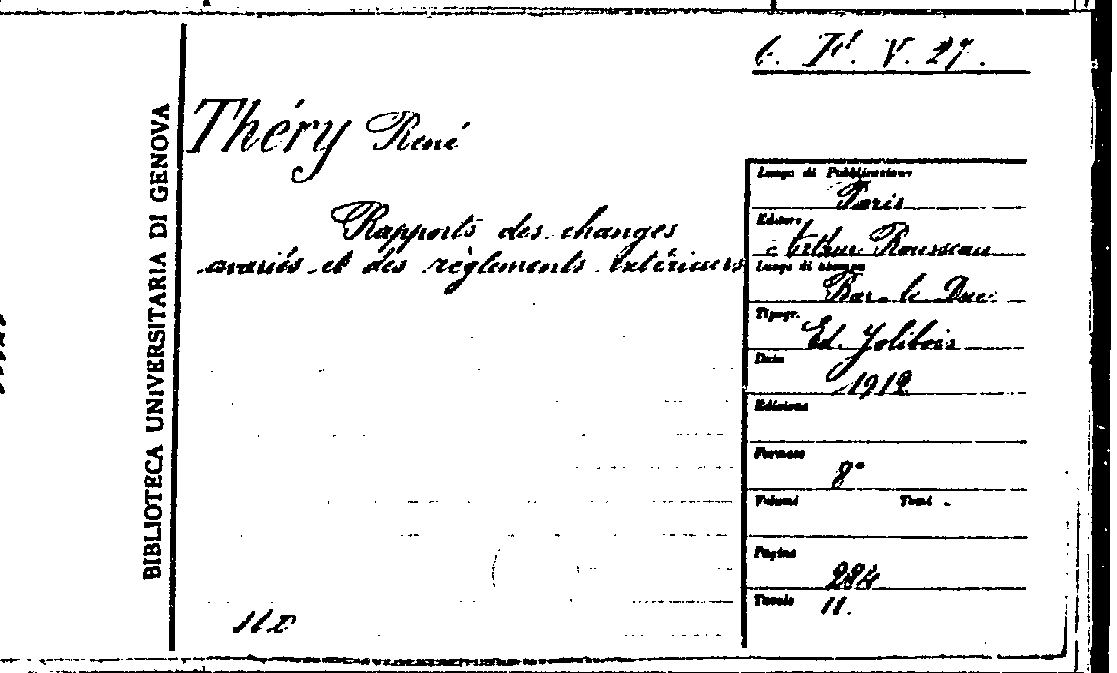 6. F. V. 27.
BIBLIOTECA UNIVERSITARIA DI GENOVA
Théry René
Rapports des changes
avariés et des règlements extérieurs
Luogo di Pubblicazione
Paris
Editore
Arthur Rousseau
Luogo di stampa
Bar-le-Duc
Tipogr.
Ed. Jolibois
Data
1912
Edizione
Formato
8°
Volumi Tomi
Pagine
284
Tavole
11.